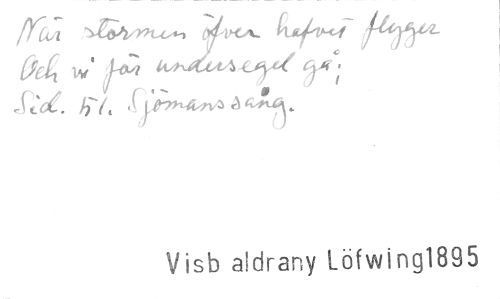 När stormen öfver hafvet flyger
Och vi får undersegel gå;
Sid. 51. Sjömanssång.
Visb aldrany Löfwing1895